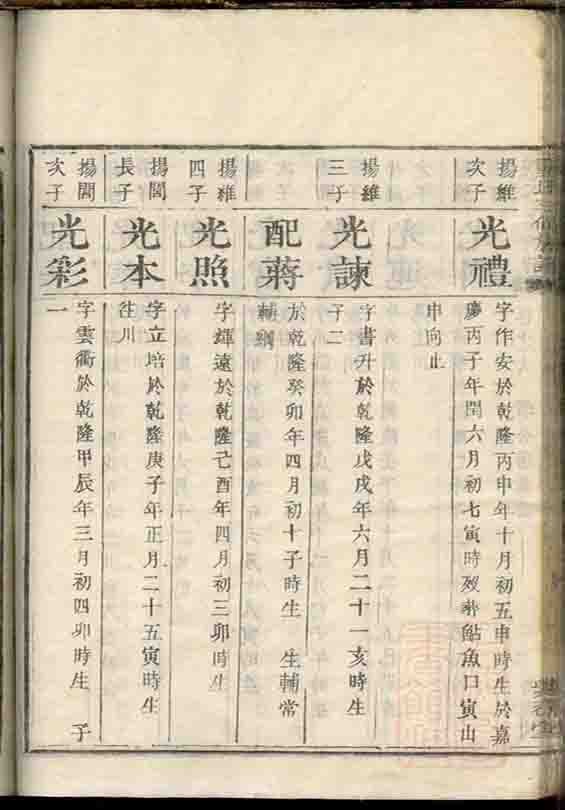 揚維
次子
光禮
字作安於乾隆丙申年十月初五申時生於嘉
慶丙子年閏六月初七寅時歿葬鮎魚口寅山
申向止
揚維
三子
光諫
字書升於乾隆戊戌年六月二十一亥時生
子二
配蔣
於乾隆癸卯年四月初十子時生 生輔常
輔綱
揚維
四子
光照
字輝遠於乾隆己酉年四月初三卯時生
揚閶
長子
光本
字立培於乾隆庚子年正月二十五寅時生
往川
揚閶
次子
光彩
字雲衢於乾隆甲辰年三月初四卯時生 子
一